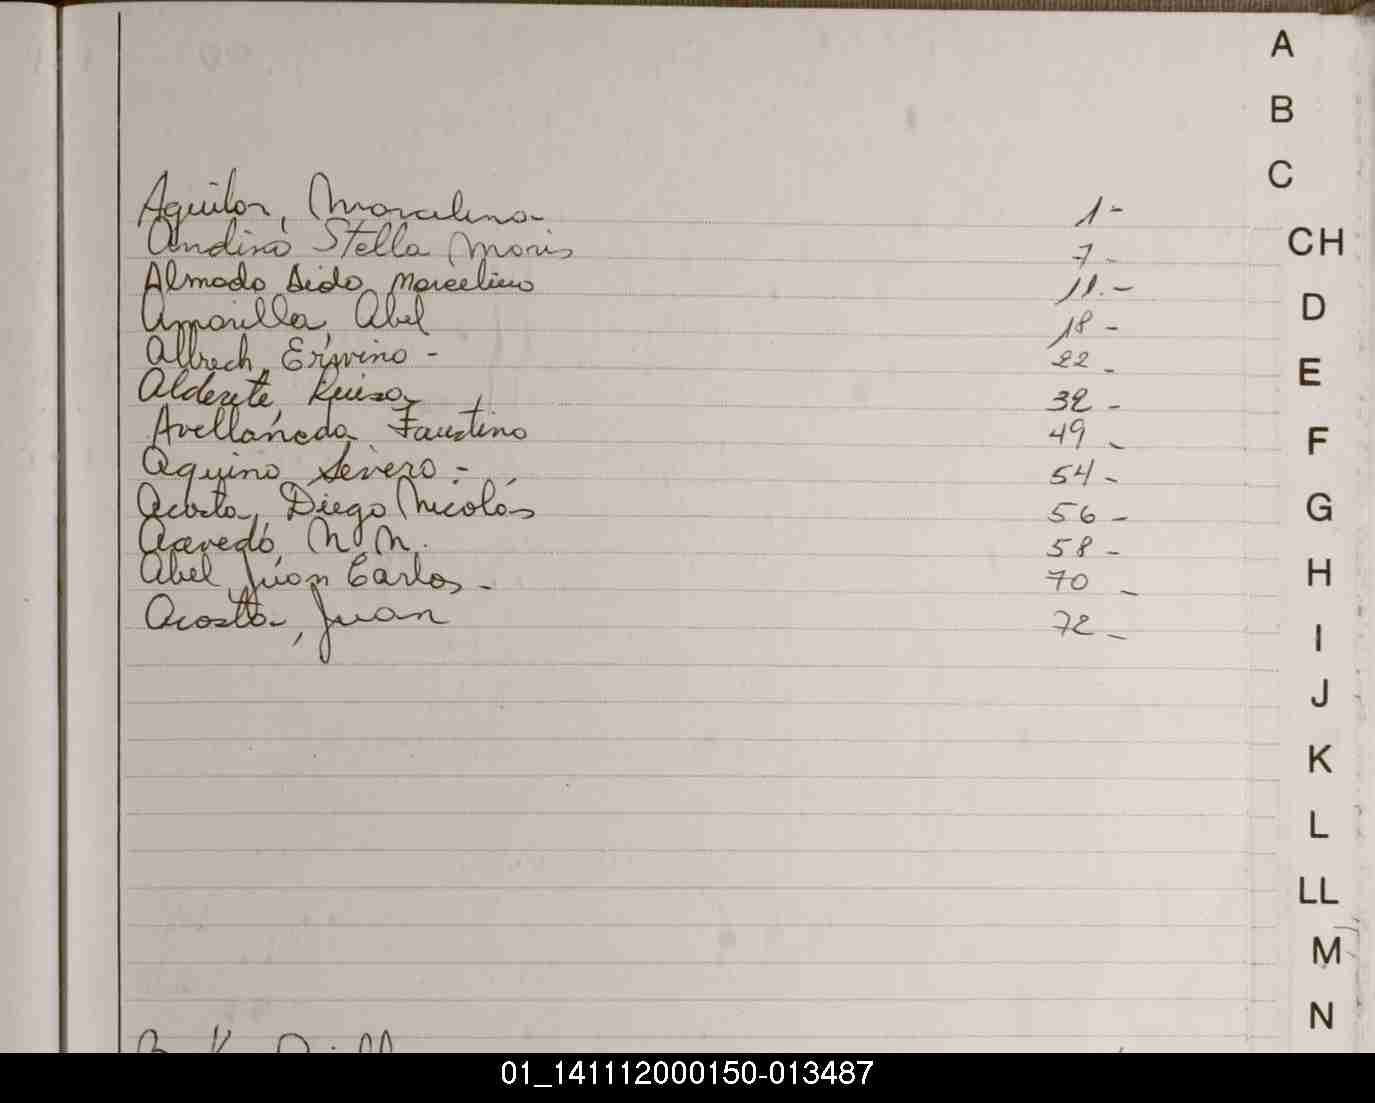 Aguilar, Marcelina 1-
Andino Stella Maris 7-
Almada Aido Marcelino 11.-
Amarilla, Abel 18-
Albrech, Erwino - 22-
Alderete, Luisa 32-
Avellaneda Faustino 49-
Aquino Severo.- 54-
Acosta, Diego Nicolás 56-
Acevedo, N.N. 58-
Abel Juan Carlos - 70-
Acosta, Juan 72-
A
B
C
CH
D
E
F
G
H
I
J
K
L
LL
M
N
01_141112000150-013487